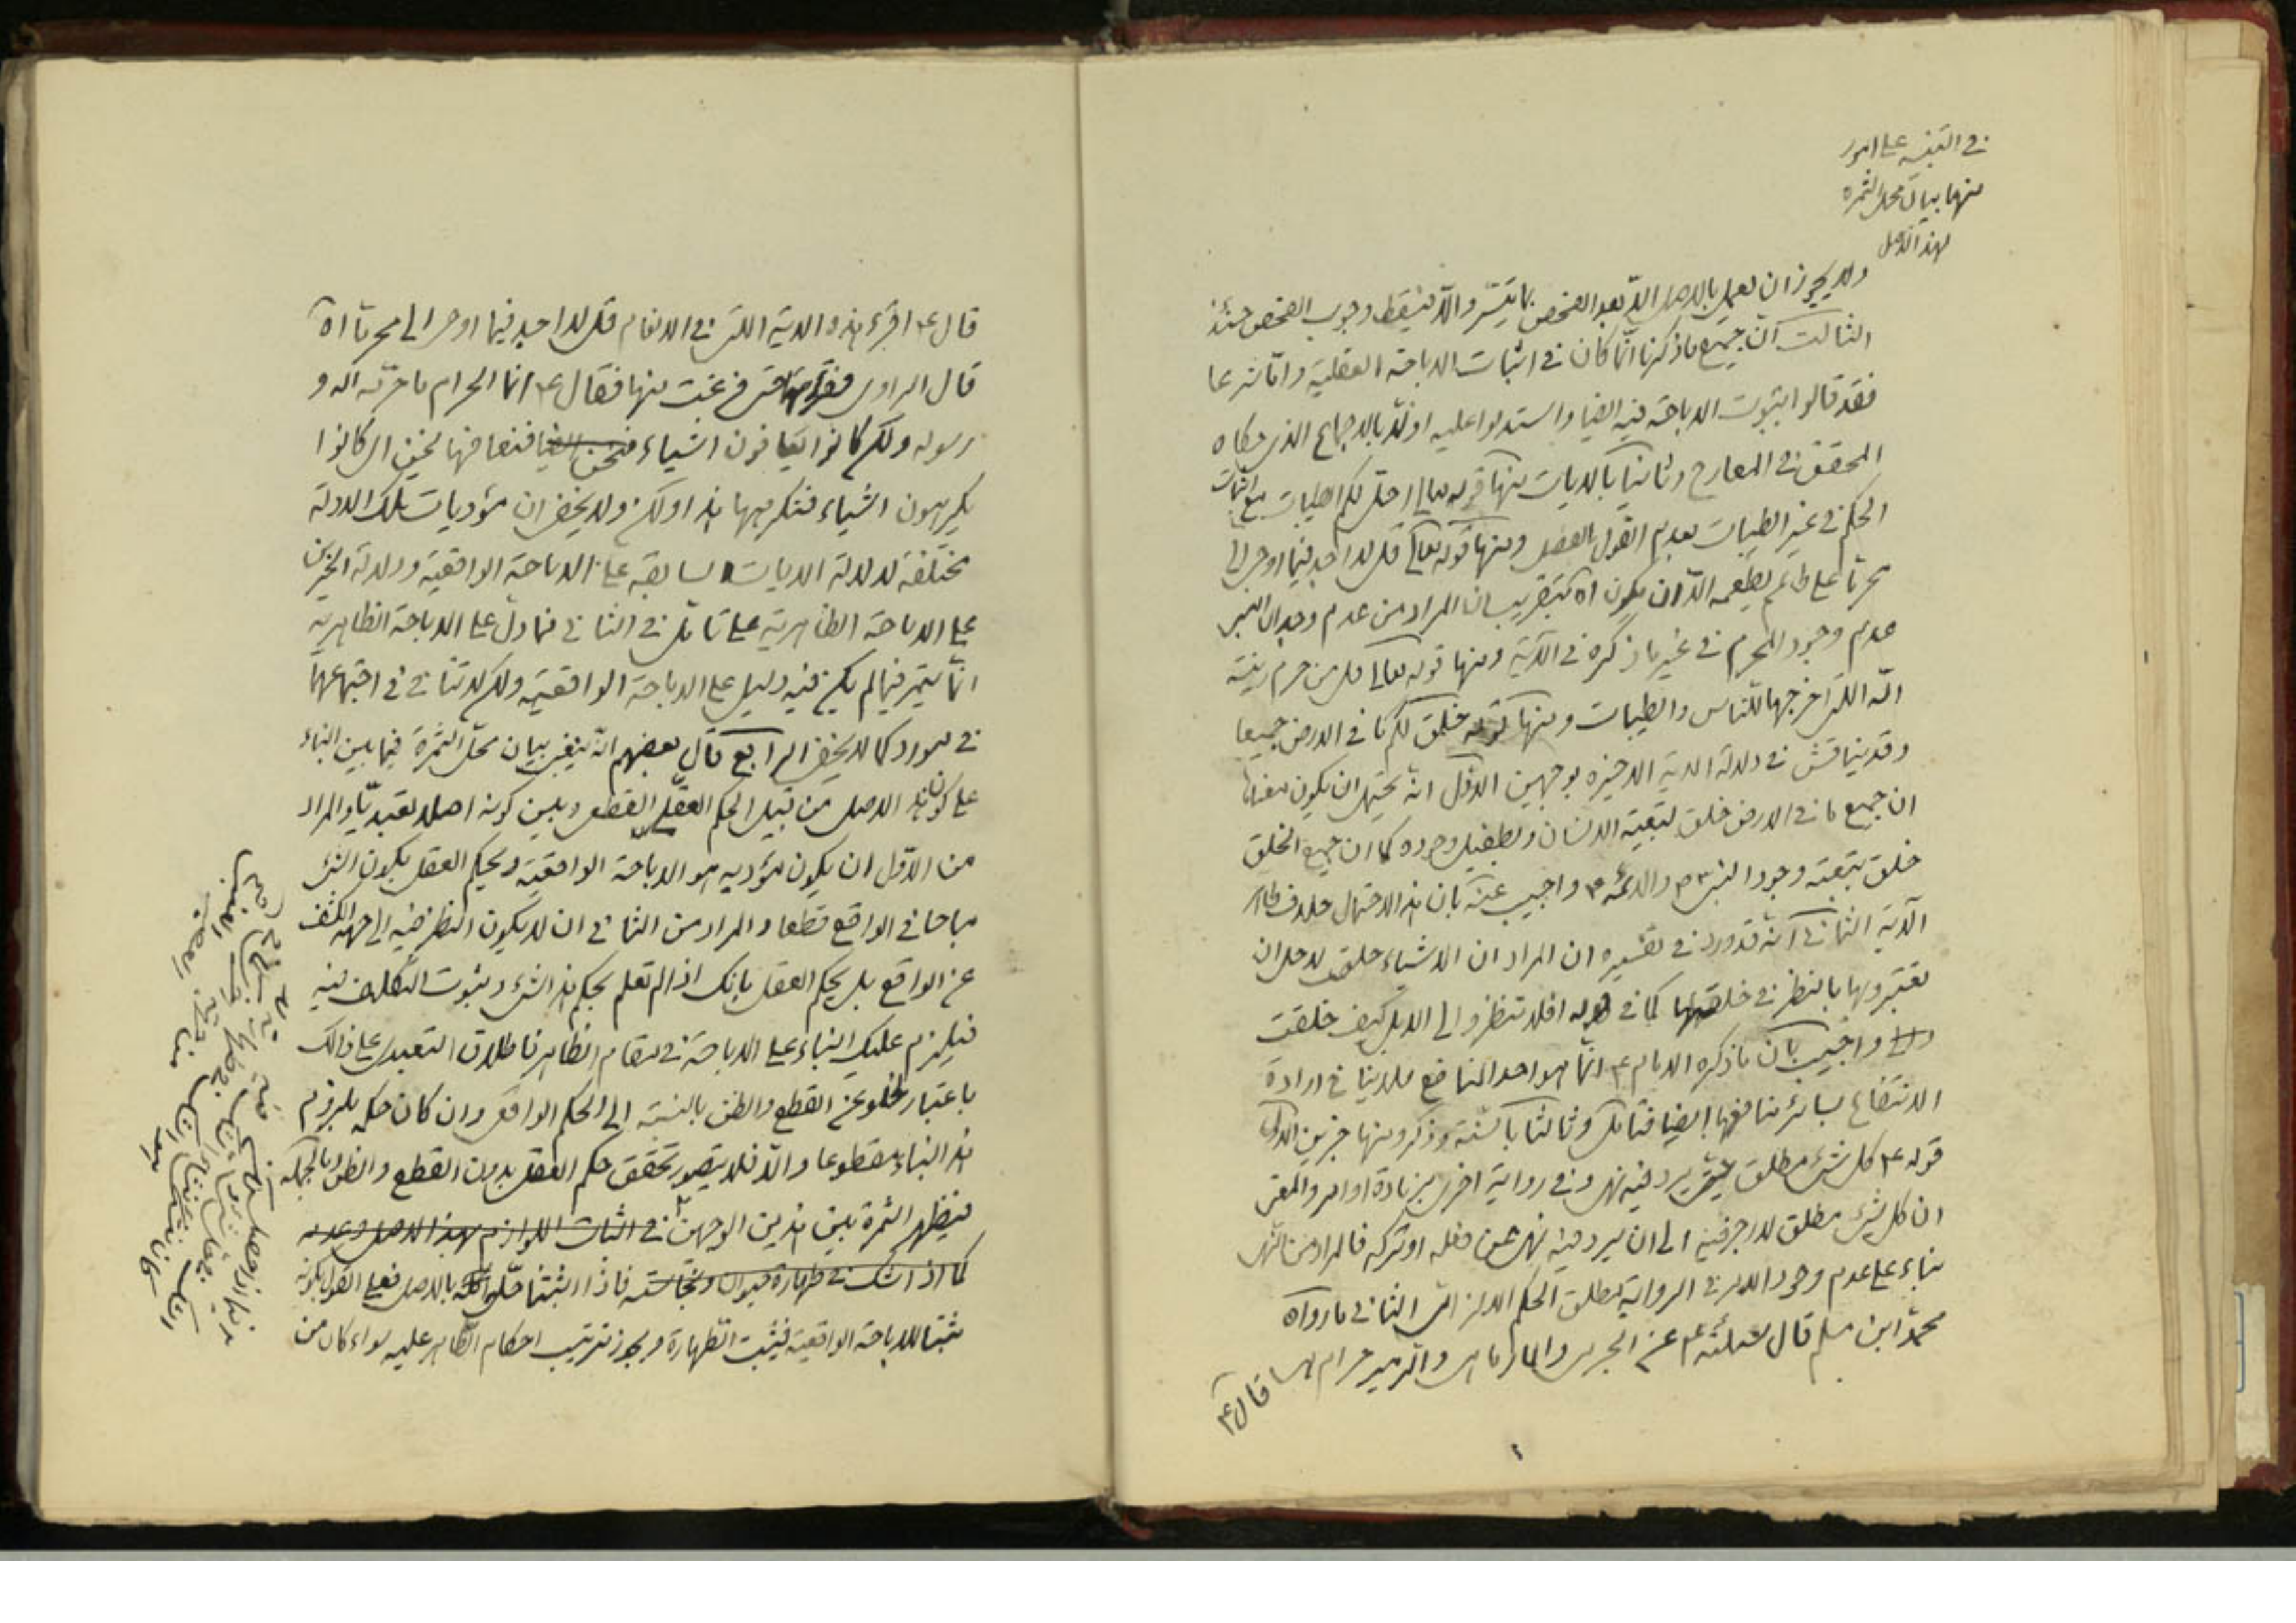 في التنبيه على امور
منها بيان محل الثمرة
لهذا الاصل
ولا يجوز ان يعمل بالاصل الا بعد الفحص بما تيسّر والا فيسقط وجوب الفحص حينئذ
الثالث انّ جميع ما ذكرنا انّما كان في اثبات الاباحة العقلية وامّا شرعا
فقد قالوا بثبوت الاباحة فيه ايضا واستدلوا عليه اولا بالاجماع الذى حكاه
المحقق في المعارج وثانيا بالايات منها قوله تعالى احل لكم الطيبات مع اثبات
الحكم في غير الطيبات بعدم القول بالفصل ومنها قوله تعالى قل لا اجد فيما اوحى الى
محرما على طاعم يطعمه الّا ان يكون اه بتقريب ان المراد من عدم وجدان النبى
عدم وجود المحرم في غير ما ذكره في الآية ومنها قوله تعالى قل من حرم زينة
الله التى اخرجها للناس والطيبات ومنها قوله خلق لكم ما في الارض جميعا
وقد يناقش في دلالة الاية الاخيرة بوجهين الاوّل انه يحتمل ان يكون معناها
ان جميع ما في الارض خلق بتبعية الانسان وبطفيل وجوده كما ان جميع الخلق
خلق بتبعية وجود النبى ص والائمة ع واجيب عنه بان هذا الاحتمال خلاف ظاهر
الآية الثانى انه قد ورد في تفسيره ان المراد ان الاشياء خلقت لاجل ان
تعتبروا بها بالنظر في خلقتها كما في قوله افلا تنظروا الى الابل كيف خلقت
واجيب بان ما ذكره الامام ع انّما هو احد المنافع فلا ينافى ارادة
الانتفاع بسائر منافعها ايضا فتامّل وثالثا بالسنّة وذكروا منها خبرين الاول
قوله ع كل شىء مطلق حتى يرد فيه نهى وفي رواية اخرى بزيادة او امر والمعنى
ان كل شىء مطلق لا حرج فيه الى ان يرد فيه نهى عن فعله او تركه فالمراد من النهى
بناء على عدم وجود الامر في الرواية مطلق الحكم الالزامى الثانى ما رواه
محمد ابن مسلم قال سئلته ع عن الجرى والمارماهى والزمير حرام هى قال ع
قال ع اقرء هذه الاية التى في الانعام قل لا اجد فيما اوحى الى محرما اه
قال الراوى فقرأتها حتى فرغت منها فقال ع انما الحرام ما حرّمه الله و
رسوله ولكن كانوا يعافون اشياء فنحن نعافها اى كانوا
يكرهون اشياء فنكرهها هذا ولكن ولا يخفى ان مؤديات تلك الادلة
مختلفة لدلالة الايات السابقة على الاباحة الواقعية ودلالة الخبرين
على الاباحة الظاهرية على تامّل في الثانى فما دلّ على الاباحة الظاهرية
انّما يتم فيما لم يكن فيه دليل على الاباحة الواقعية ولكن لا تنافى في اجتماعهما
في مورد كما لا يخفى الرابع قال بعضهم انّه ينبغى بيان محلّ الثمرة فيما بين البناء
على كون هذا الاصل من قبيل الحكم العقلى القطعى وبين كونه اصلا تعبديّا والمراد
من الاوّل ان يكون مؤديه هو الاباحة الواقعية ويحكم العقل بكون الشىء
مباحا في الواقع قطعا والمراد من الثانى ان لا يكون النظر فيه الى جهة الكشف
عن الواقع بل يحكم العقل بانك اذا لم تعلم بحكم هذا الشىء وثبوت التكليف فيه
فيلزم عليك البناء على الاباحة في مقام الظاهر فاطلاق التعبدى على ذلك
باعتبار خلوه عن القطع والظن بالنسبة الى الحكم الواقعى وان كان حكمه بلزوم
هذا البناء مقطوعا والا فلا يتصور تحقق حكم العقل بدون القطع والظن وبالجملة
فيظهر الثمرة بين هذين الوجهين في اثبات اللوازم بهذا الاصل وعدمه
كما اذا شك في طهارة حيوان ونجاسته فاذا اثبتنا حلّية اكله بالاصل فعلى القول بكونه
مثبتا للاباحة الواقعية فيثبت الطهارة ويجوز ترتيب احكام الطاهر عليه سواء كان من